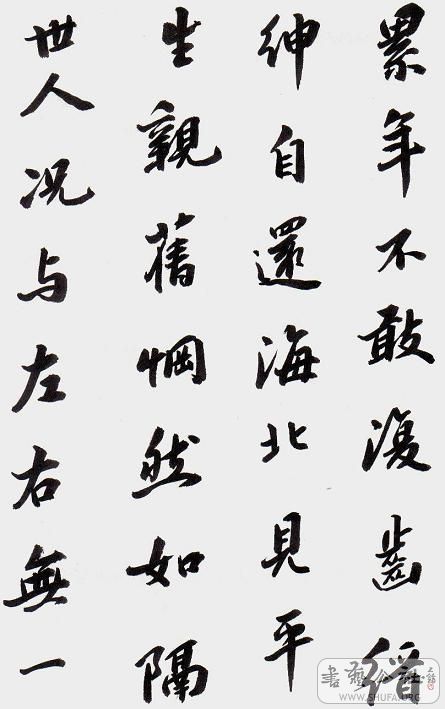 累年不敢復齒縉
紳自還海北見平
生親舊惘然如隔
世人况与左右無一
書藝公社
WWW.SHUFA.ORG